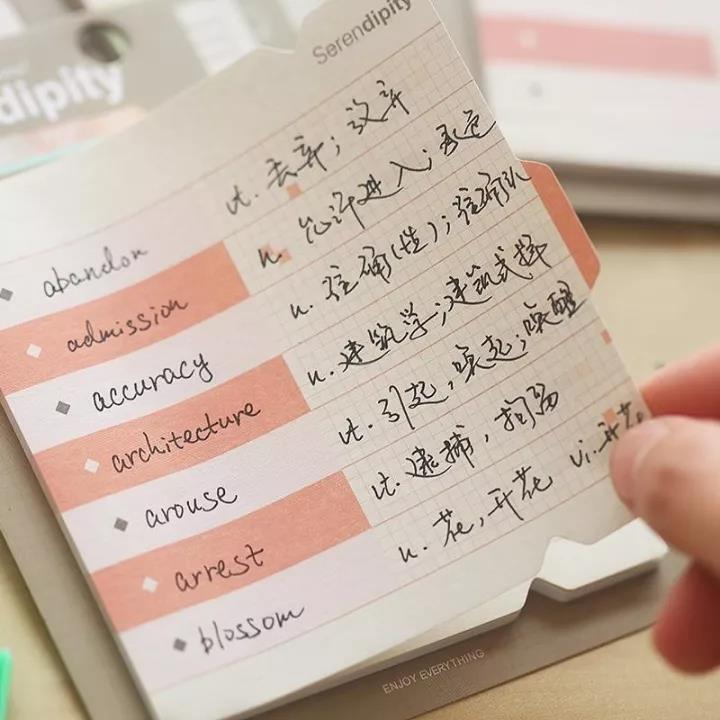 dipity
Serendipity
abandon vt. 丢弃；放弃
admission n. 允许进入；承
accuracy n. 准确(性)；准确
architecture n. 建筑学；建筑式样
arouse vt. 引起，唤起；唤醒
arrest vt. 逮捕，拘留
blossom n. 花，开花 vi. 开花
ENJOY EVERYTHING